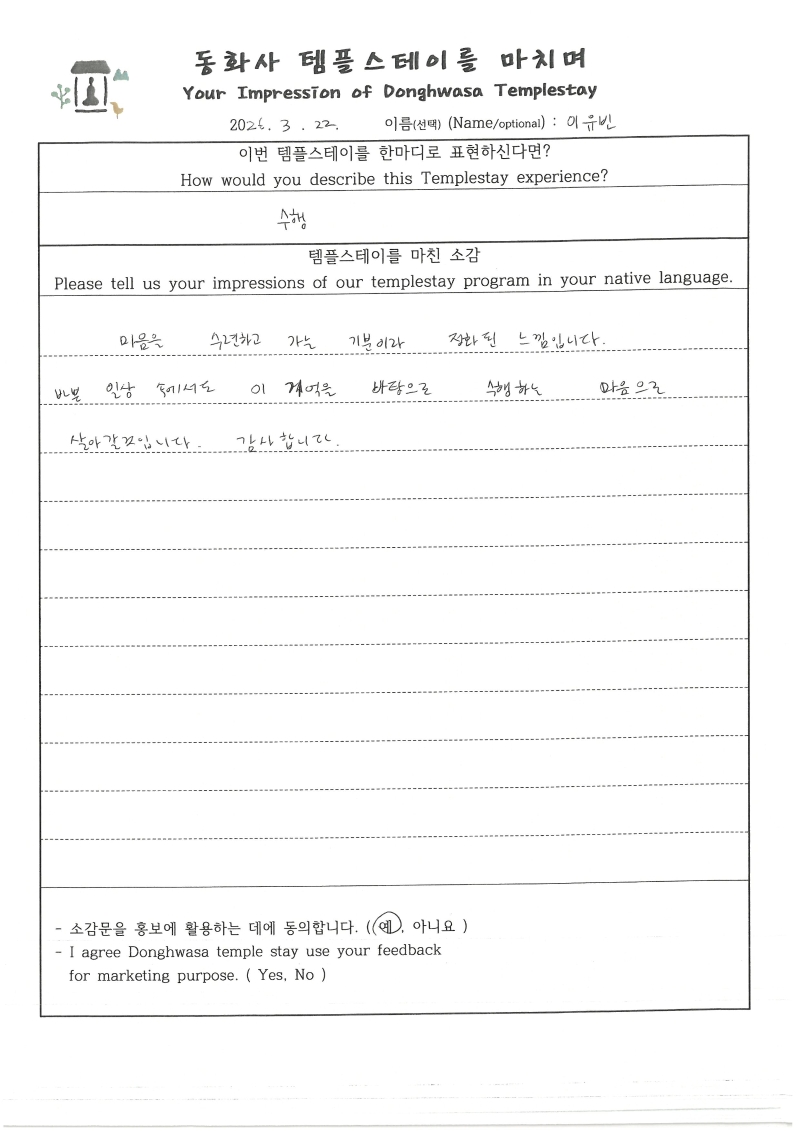 동화사 템플스테이를 마치며
Your Impression of Donghwasa Templestay
2026. 3. 22. 이름(선택) (Name/optional) : 이유빈
이번 템플스테이를 한마디로 표현하신다면?
How would you describe this Templestay experience?
수행
템플스테이를 마친 소감
Please tell us your impressions of our templestay program in your native language.
마음을 수련하고 가는 기분이라 정화된 느낌입니다.
바쁜 일상 속에서도 이 기억을 바탕으로 수행하는 마음으로
살아갈것입니다. 감사합니다.
- 소감문을 홍보에 활용하는 데에 동의합니다. ( 예, 아니요 )
- I agree Donghwasa temple stay use your feedback
for marketing purpose. ( Yes, No )